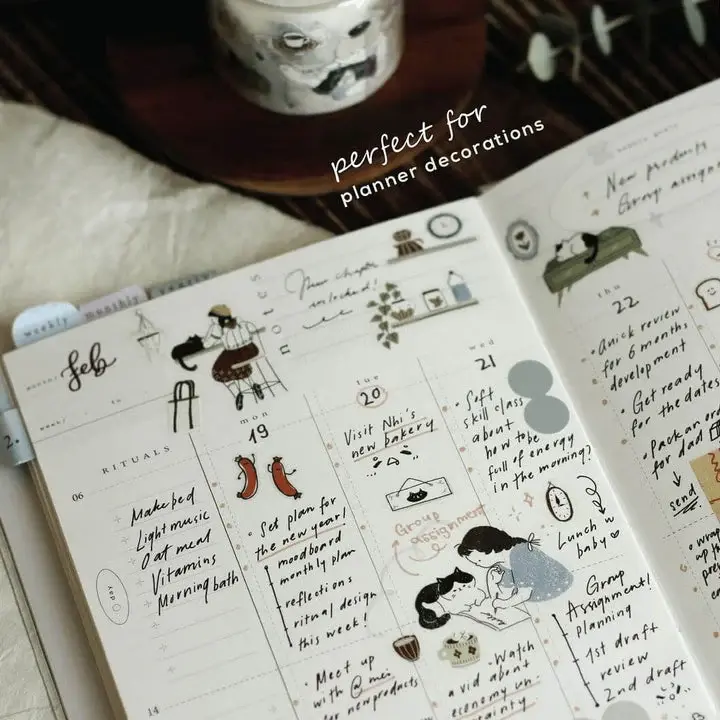 perfect for
planner decorations
weekly
monthly
yearly
month/
feb
week/
to
notes
New chapter
unlocked!
RITUALS
06
Make bed
Light music
Oat meal
Vitamins
Morning bath
day
14
mon
19
• Set plan for
the new year!
moodboard
monthly plan
reflections
ritual design
this week!
• Meet up
with @mei
for new products
tue
20
Visit Nhi's
new bakery
Group
assignment
• Watch
a vid about
economy un-
certainty
wed
21
• Soft
skill class
about
how to be
full of energy
in the morning?
Lunch w
baby
Group
Assignment!
planning
1st draft
review
2nd draft
New products
Group
thu
22
• Quick review
for 6 months
development
• Get ready
for the dates
• Pack an
for dad
send
2.